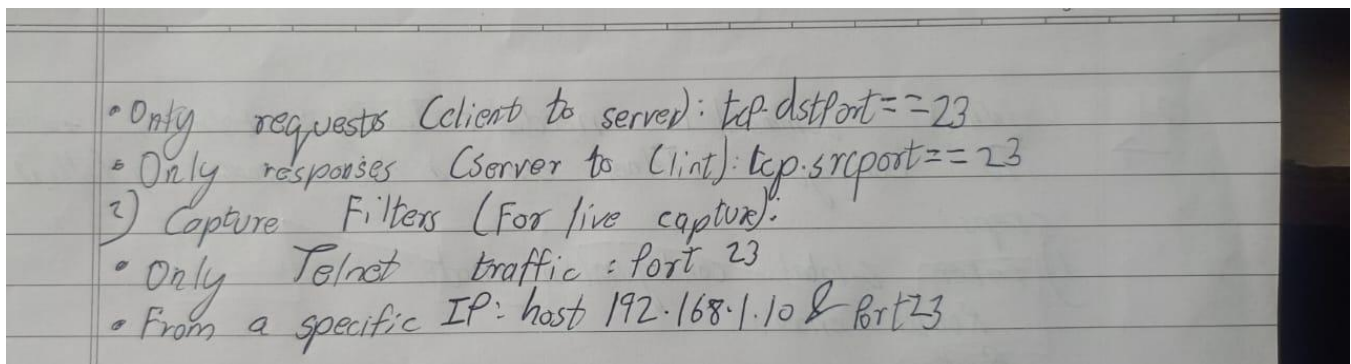 • Only requests (client to server): tcp.dstPort==23
• Only responses (server to Clint): tcp.srcport==23
2) Capture Filters (For live capture):
• Only Telnet traffic : Port 23
• From a specific IP: host 192.168.1.10 & Port23